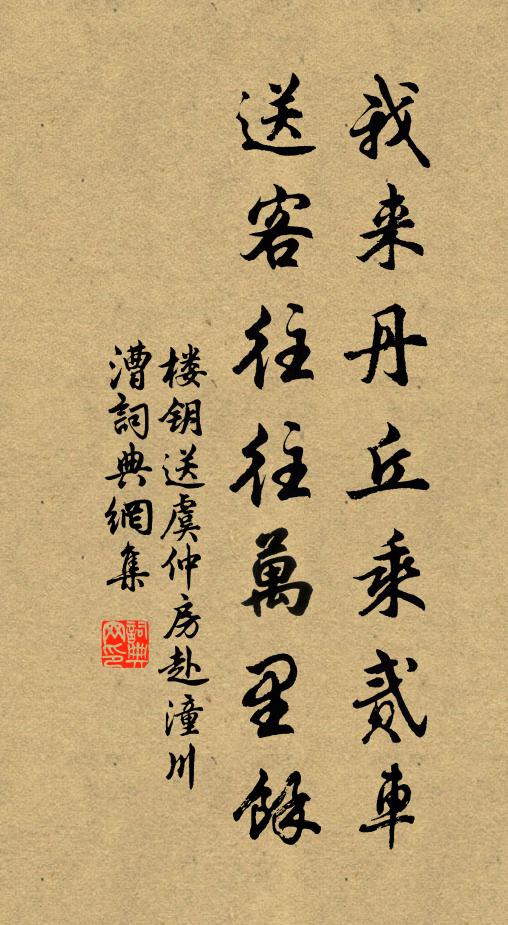 我来丹丘乘贰車
送客往往萬里餘
楼钥送虞仲房赴潼川
漕詞典網集
詞典
网印